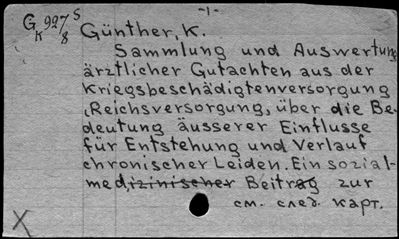 -1-
G 927 S
K 8
Günther, K.
Sammlung und Auswertung
ärztlicher Gutachten aus der
Kriegsbeschädigtenversorgung
(Reichsversorgung, über die Be-
deutung äusserer Einflusse
für Entstehung und Verlauf
chronischer Leiden. Ein sozial-
medizinischer Beitrag zur
см. след. карт.